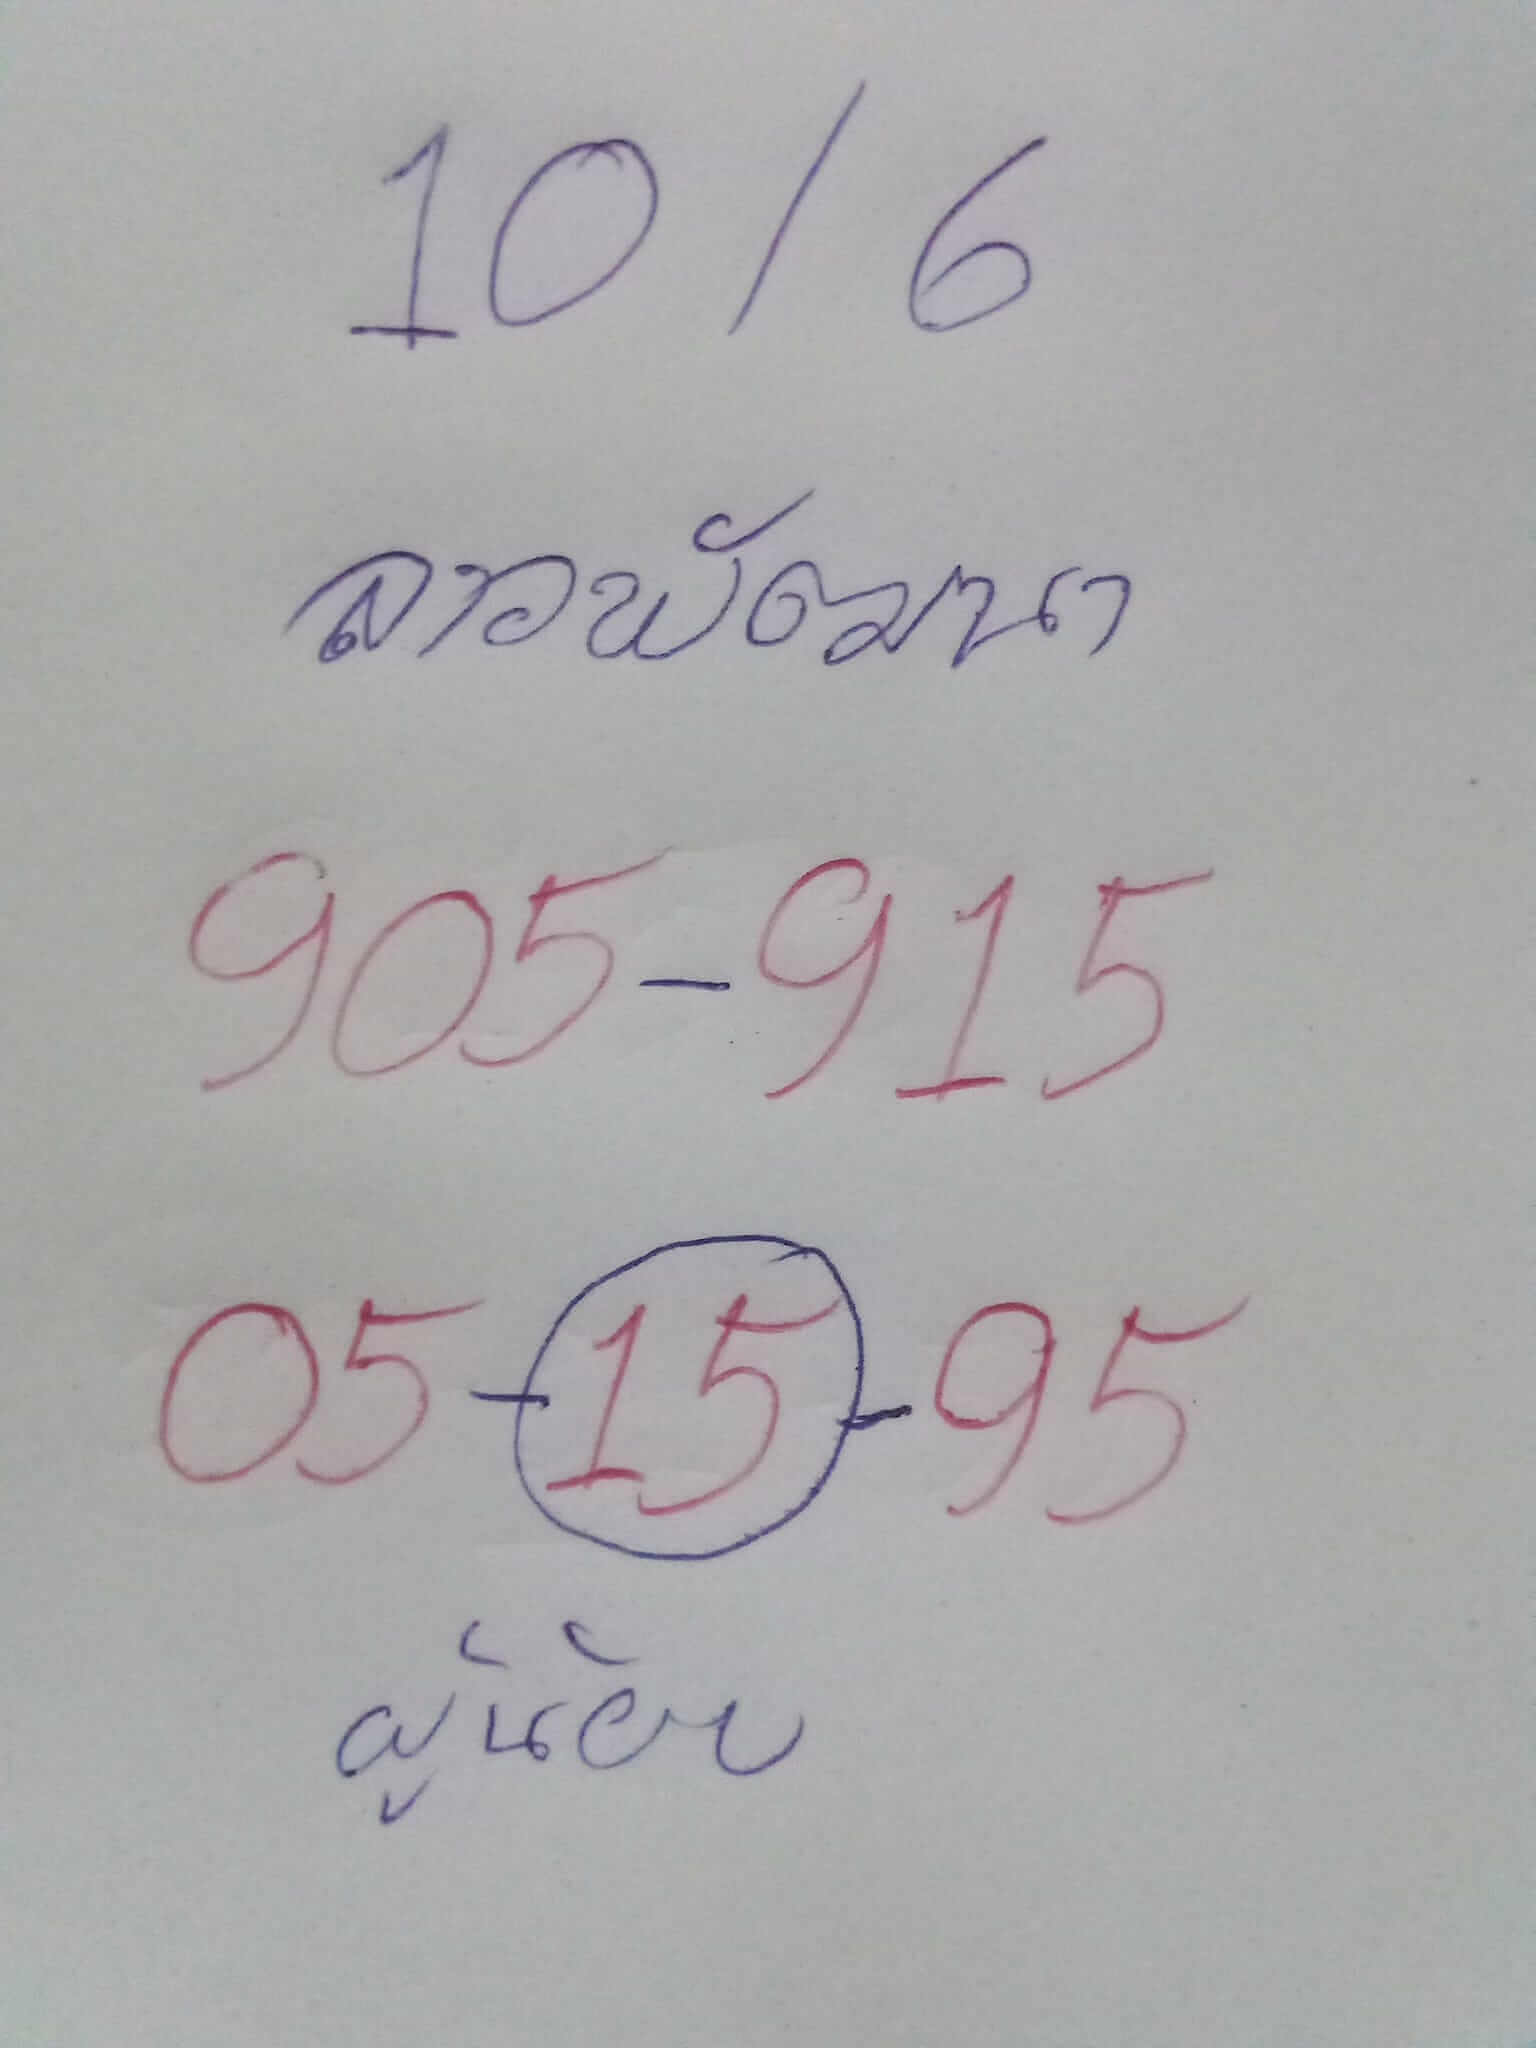 10/6
ลาวพัฒนา
905-915
05-15-95
ผู้น้อย